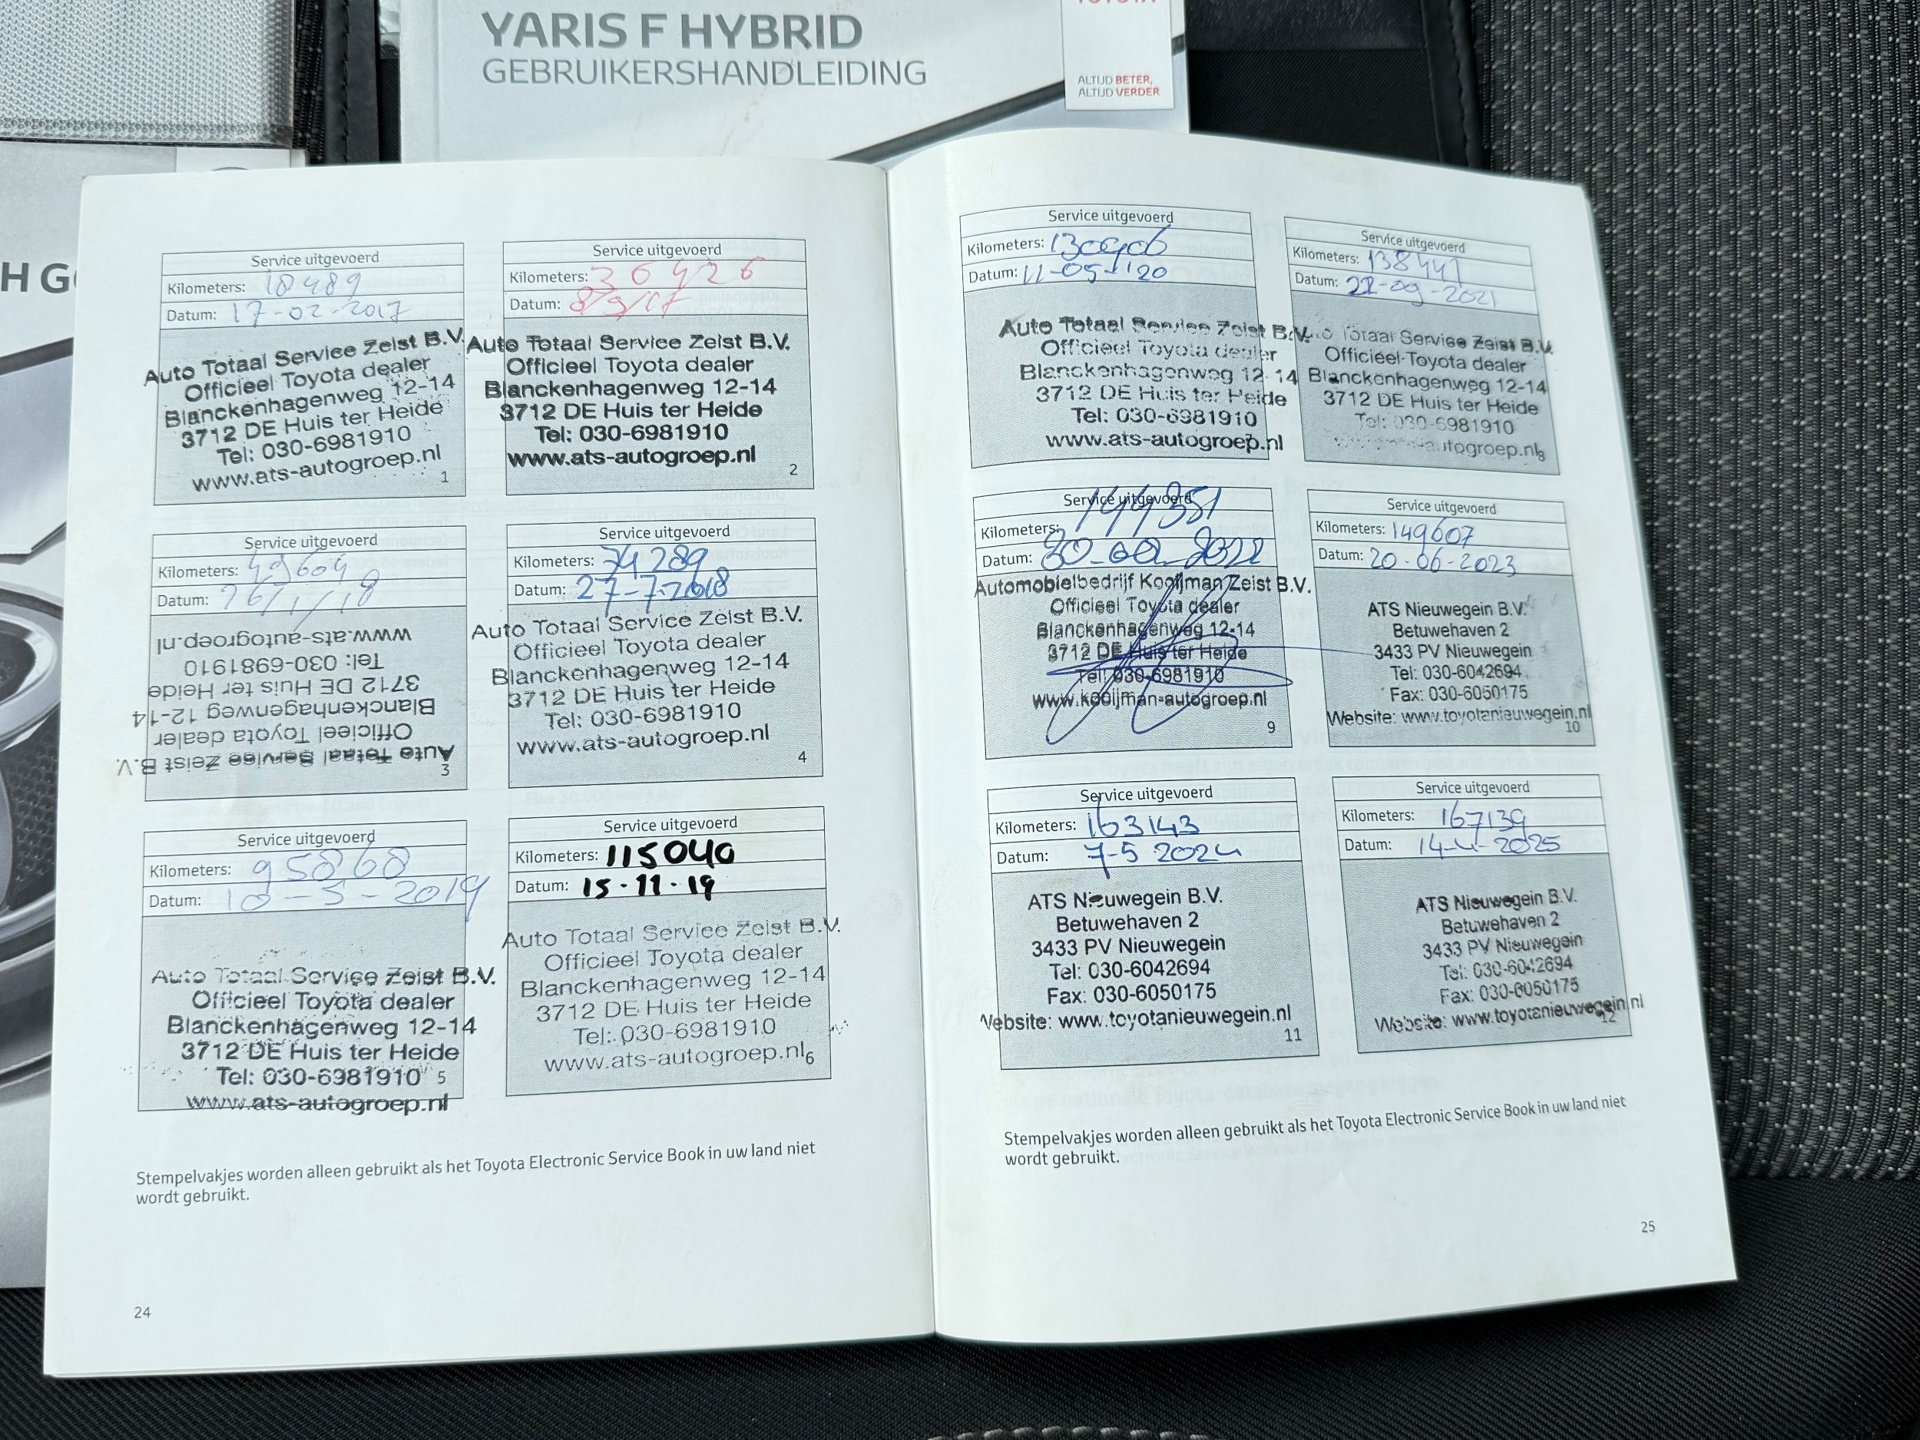 YARIS F HYBRID
GEBRUIKERSHANDLEIDING
ALTIJD BETER,
ALTIJD VERDER
Service uitgevoerd
Kilometers: 18489
Datum: 17-02-2017
Auto Totaal Service Zeist B.V.
Officieel Toyota dealer
Blanckenhagenweg 12-14
3712 DE Huis ter Heide
Tel: 030-6981910
www.ats-autogroep.nl
1
Service uitgevoerd
Kilometers: 36426
Datum: 8/9/17
Auto Totaal Service Zeist B.V.
Officieel Toyota dealer
Blanckenhagenweg 12-14
3712 DE Huis ter Heide
Tel: 030-6981910
www.ats-autogroep.nl
2
Service uitgevoerd
Kilometers: 49604
Datum: 26/1/18
Auto Totaal Service Zeist B.V.
Officieel Toyota dealer
Blanckenhagenweg 12-14
3712 DE Huis ter Heide
Tel: 030-6981910
www.ats-autogroep.nl
3
Service uitgevoerd
Kilometers: 74289
Datum: 27-7-2018
Auto Totaal Service Zeist B.V.
Officieel Toyota dealer
Blanckenhagenweg 12-14
3712 DE Huis ter Heide
Tel: 030-6981910
www.ats-autogroep.nl
4
Service uitgevoerd
Kilometers: 95868
Datum: 10-5-2019
Auto Totaal Service Zeist B.V.
Officieel Toyota dealer
Blanckenhagenweg 12-14
3712 DE Huis ter Heide
Tel: 030-6981910
www.ats-autogroep.nl
5
Service uitgevoerd
Kilometers: 115040
Datum: 15-11-19
Auto Totaal Service Zeist B.V.
Officieel Toyota dealer
Blanckenhagenweg 12-14
3712 DE Huis ter Heide
Tel: 030-6981910
www.ats-autogroep.nl
6
Stempelvakjes worden alleen gebruikt als het Toyota Electronic Service Book in uw land niet
wordt gebruikt.
24
Service uitgevoerd
Kilometers:
Datum: 11-05-'20
Auto Totaal Service Zeist B.V.
Officieel Toyota dealer
Blanckenhagenweg 12-14
3712 DE Huis ter Heide
Tel: 030-6981910
www.ats-autogroep.nl
7
Service uitgevoerd
Kilometers: 138441
Datum: 22-09-2021
Auto Totaal Service Zeist B.V.
Officieel Toyota dealer
Blanckenhagenweg 12-14
3712 DE Huis ter Heide
Tel: 030-6981910
www.ats-autogroep.nl
8
Service uitgevoerd
Kilometers: 144351
Datum:
Automobielbedrijf Kooijman Zeist B.V.
Officieel Toyota dealer
Blanckenhagenweg 12-14
3712 DE Huis ter Heide
Tel: 030-6981910
www.kooijman-autogroep.nl
9
Service uitgevoerd
Kilometers: 149607
Datum: 20-06-2023
ATS Nieuwegein B.V.
Betuwehaven 2
3433 PV Nieuwegein
Tel: 030-6042694
Fax: 030-6050175
Website: www.toyotanieuwegein.nl
10
Service uitgevoerd
Kilometers: 163143
Datum: 7-5 2024
ATS Nieuwegein B.V.
Betuwehaven 2
3433 PV Nieuwegein
Tel: 030-6042694
Fax: 030-6050175
Website: www.toyotanieuwegein.nl
11
Service uitgevoerd
Kilometers: 167139
Datum: 14-4-2025
ATS Nieuwegein B.V.
Betuwehaven 2
3433 PV Nieuwegein
Tel: 030-6042694
Fax: 030-6050175
Website: www.toyotanieuwegein.nl
12
Stempelvakjes worden alleen gebruikt als het Toyota Electronic Service Book in uw land niet
wordt gebruikt.
25